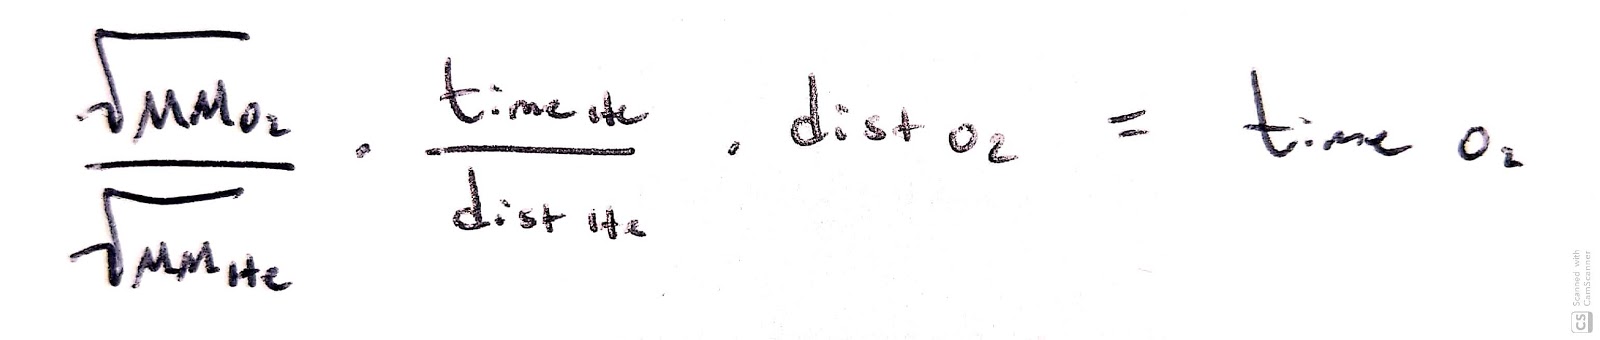 √MM O₂ / √MM He · time He / dist He · dist O₂ = time O₂
Scanned with
CS CamScanner